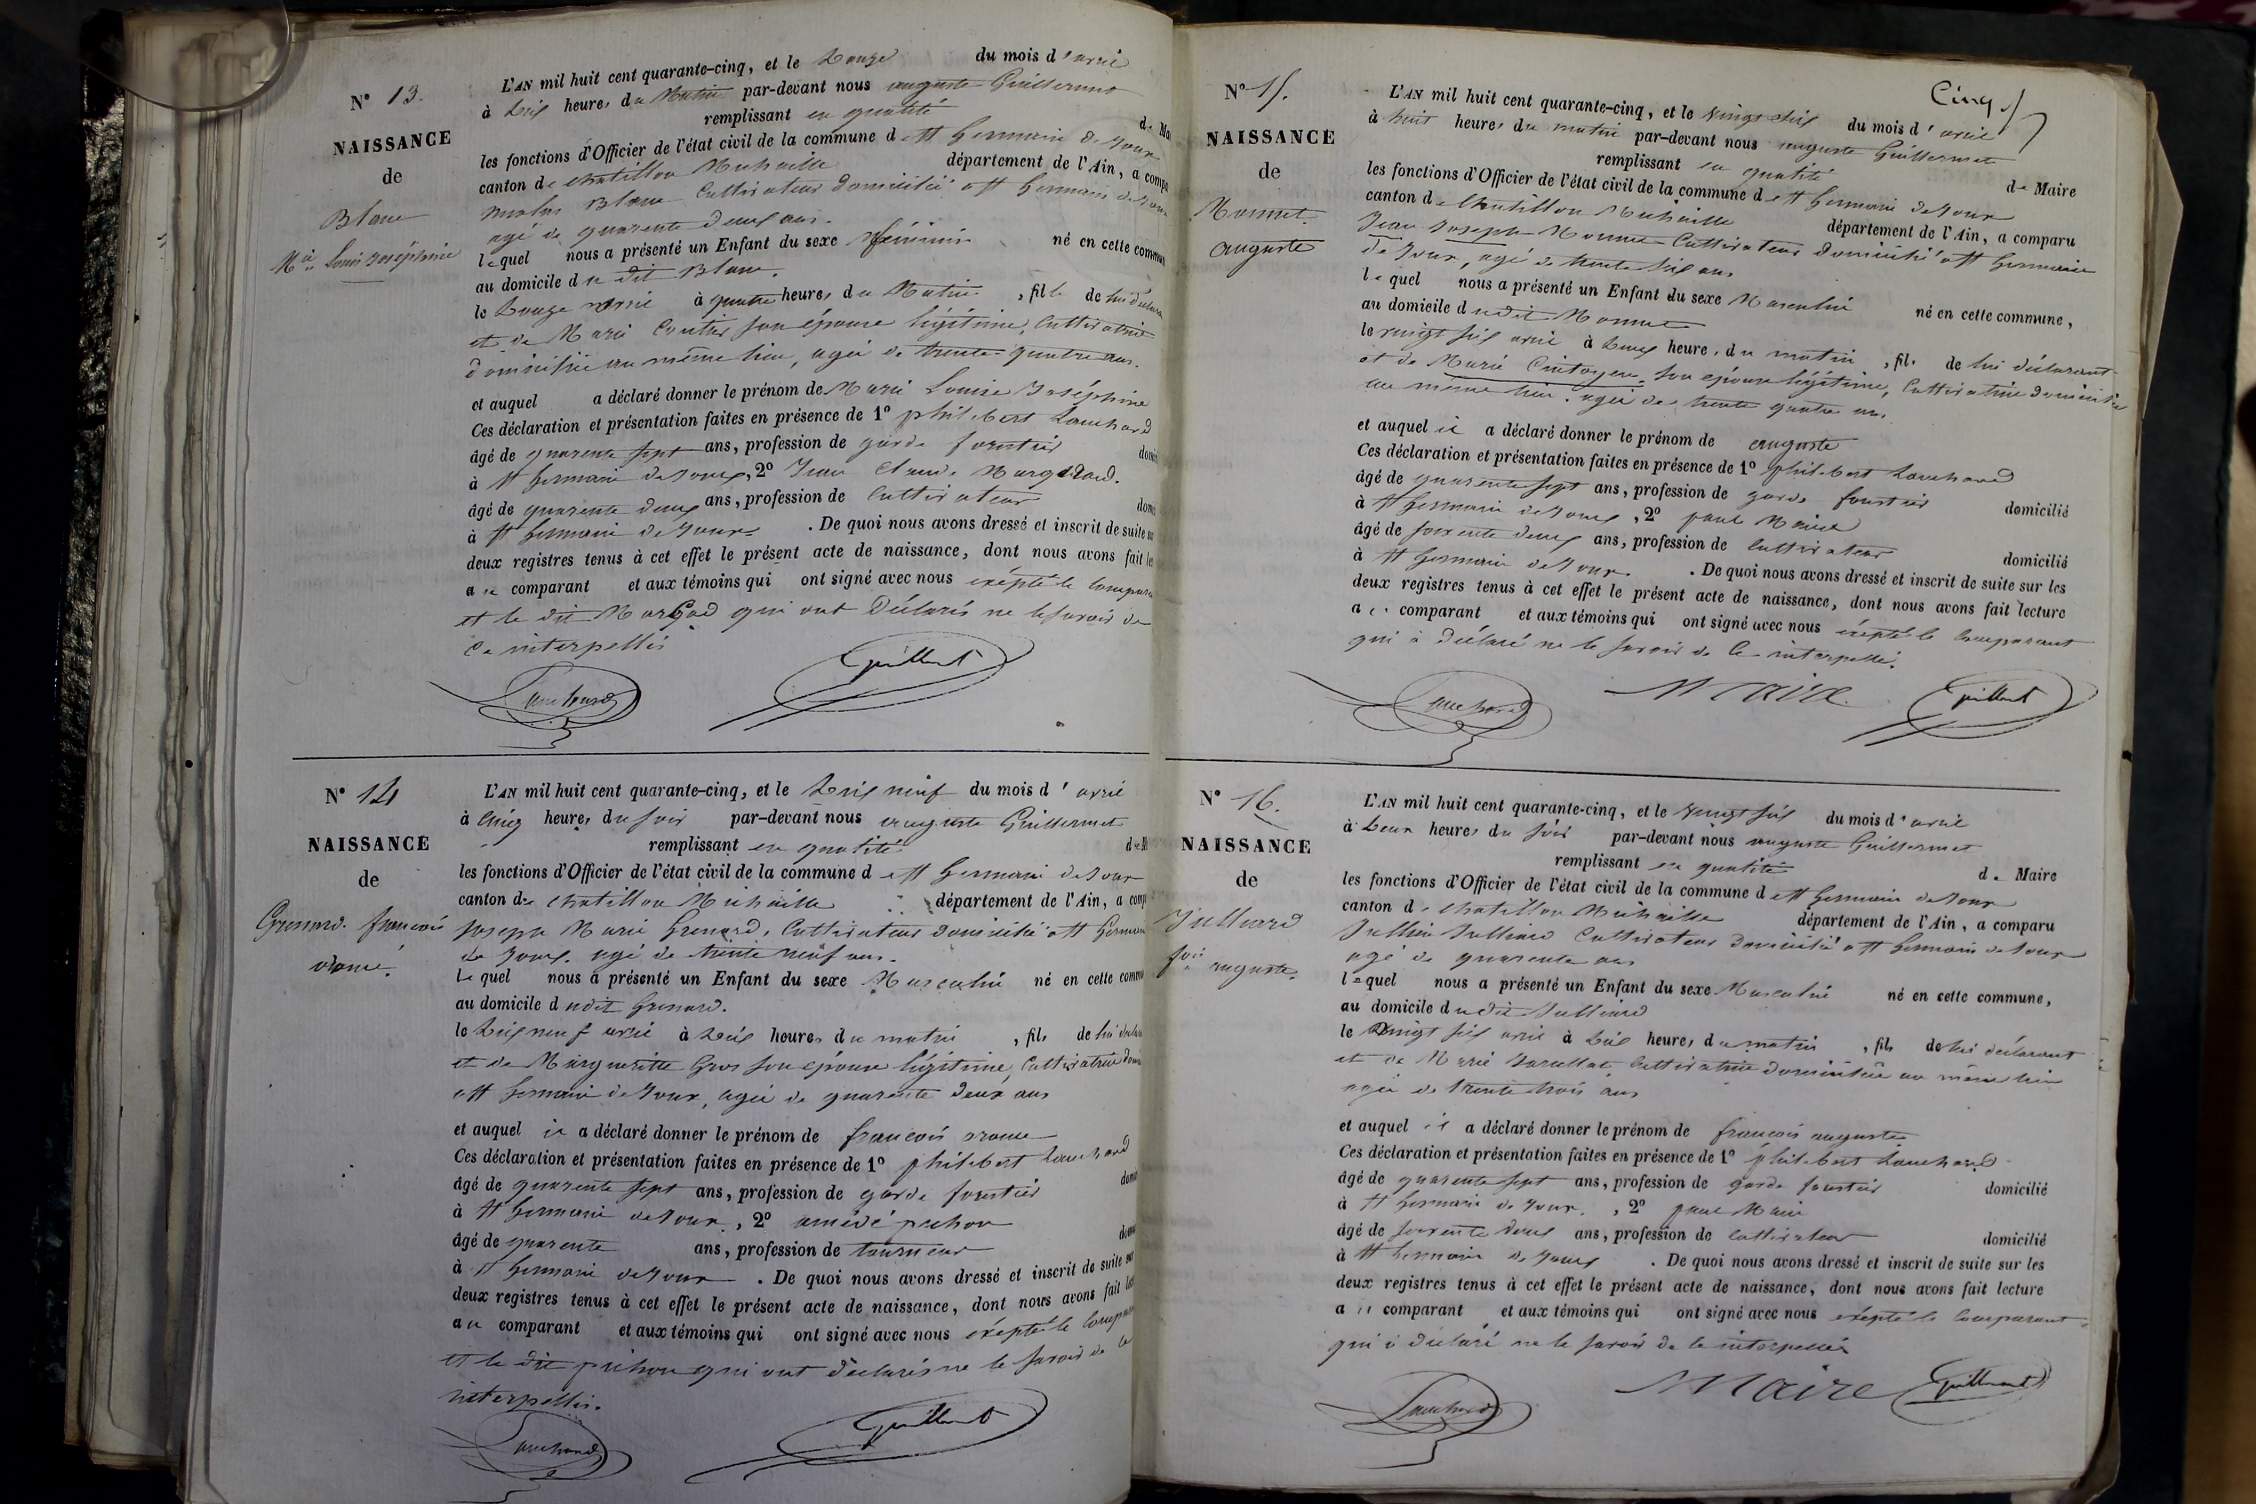 N° 13.
NAISSANCE
de
Blanc
Mie Louise Joséphine
L'AN mil huit cent quarante-cinq, et le Douze du mois d'avril
à Dix heures du Matin par-devant nous auguste Guillermet
remplissant en qualité de Ma
les fonctions d'Officier de l'état civil de la commune de St Germain de Joux
canton de chatillon Michaille département de l'Ain, a compa
Blanc Cultivateur domicilié a St Germain de Joux
agé de quarente deux ans.
lequel nous a présenté un Enfant du sexe féminin né en cette commun
au domicile du dit Blanc.
le Douze avril à quatre heures du Matin, fille de lui déclara
et de Marie son épouse légitime, Cultivatrice
domiciliée au même lieu, agée de trente quatre ans.
et auquel a déclaré donner le prénom de Marie Louise Joséphine
Ces déclaration et présentation faites en présence de 1° philibert
âgé de quarente sept ans, profession de garde forestier domi
à St Germain de Joux, 2° Jean Claude
âgé de quarente deux ans, profession de Cultivateur domi
à St Germain de Joux. De quoi nous avons dressé et inscrit de suite su
deux registres tenus à cet effet le présent acte de naissance, dont nous avons fait le
au comparant et aux témoins qui ont signé avec nous exépté le compara
et le dit qui ont déclarés ne le savoir de
ce interpellés
Guillermet
N° 14
NAISSANCE
de
Grenard françois
L'AN mil huit cent quarante-cinq, et le Dix neuf du mois d'avril
à cinq heures du soir par-devant nous auguste Guillermet
remplissant en qualité de M
les fonctions d'Officier de l'état civil de la commune de St Germain de Joux
canton de chatillon Michaille département de l'Ain, a comp
Joseph Marie Grenard, Cultivateur domicilié a St Germain
de Joux, agé de trente neuf ans.
Lequel nous a présenté un Enfant du sexe Masculin né en cette comm
au domicile dudit Grenard.
le Dix neuf avril à Dix heures du matin, fils de lui décla
et de Margueritte Gros son épouse légitime, Cultivatrice dom
a St Germain de Joux, agée de quarente deux ans
et auquel il a déclaré donner le prénom de françois
Ces déclaration et présentation faites en présence de 1° philibert
âgé de quarente sept ans, profession de garde forestier domi
à St Germain de Joux, 2° amédé
âgé de quarente ans, profession de tourneur domi
à St Germain de Joux. De quoi nous avons dressé et inscrit de suite sur
deux registres tenus à cet effet le présent acte de naissance, dont nous avons fait lec
au comparant et aux témoins qui ont signé avec nous exépté le compara
et le dit qui ont déclarés ne le savoir de ce
interpellés.
Guillermet
Cinq 5
N° 15.
NAISSANCE
de
Monnet
auguste
L'AN mil huit cent quarante-cinq, et le vingt six du mois d'avril
à huit heures du matin par-devant nous auguste Guillermet
remplissant en qualité de Maire
les fonctions d'Officier de l'état civil de la commune de St Germain de Joux
canton de chatillon Michaille département de l'Ain, a comparu
Jean Joseph Monnet Cultivateur domicilié a St Germain
de Joux, agé de trente six ans
lequel nous a présenté un Enfant du sexe Masculin né en cette commune,
au domicile dudit Monnet
le vingt six avril à Deux heures du matin, fils de lui déclarant
et de Marie son épouse légitime, Cultivatrice domiciliée
au même lieu, agée de trente quatre ans
et auquel il a déclaré donner le prénom de auguste
Ces déclaration et présentation faites en présence de 1° philibert
âgé de quarente sept ans, profession de garde forestier domicilié
à St Germain de Joux, 2° paul Maire
âgé de soixente deux ans, profession de cultivateur domicilié
à St Germain de Joux. De quoi nous avons dressé et inscrit de suite sur les
deux registres tenus à cet effet le présent acte de naissance, dont nous avons fait lecture
au comparant et aux témoins qui ont signé avec nous exépté le comparant
qui a déclaré ne le savoir de ce interpellé.
Maire Guillermet
N° 16.
NAISSANCE
de
Julliard
fois auguste
L'AN mil huit cent quarante-cinq, et le vingt six du mois d'avril
à Deux heures du soir par-devant nous auguste Guillermet
remplissant en qualité de Maire
les fonctions d'Officier de l'état civil de la commune de St Germain de Joux
canton de chatillon Michaille département de l'Ain, a comparu
Jullien Julliard Cultivateur domicilié a St Germain de Joux
agé de quarente ans
lequel nous a présenté un Enfant du sexe Masculin né en cette commune,
au domicile dudit Julliard
le vingt six avril à Dix heures du matin, fils de lui déclarant
et de Marie Cultivatrice domiciliée au même lieu
agée de trente trois ans
et auquel il a déclaré donner le prénom de françois auguste
Ces déclaration et présentation faites en présence de 1° philibert
âgé de quarente sept ans, profession de garde forestier domicilié
à St Germain de Joux, 2° paul Maire
âgé de soixente deux ans, profession de cultivateur domicilié
à St Germain de Joux. De quoi nous avons dressé et inscrit de suite sur les
deux registres tenus à cet effet le présent acte de naissance, dont nous avons fait lecture
au comparant et aux témoins qui ont signé avec nous exépté le comparant
qui a déclaré ne le savoir de ce interpellé
Maire Guillermet